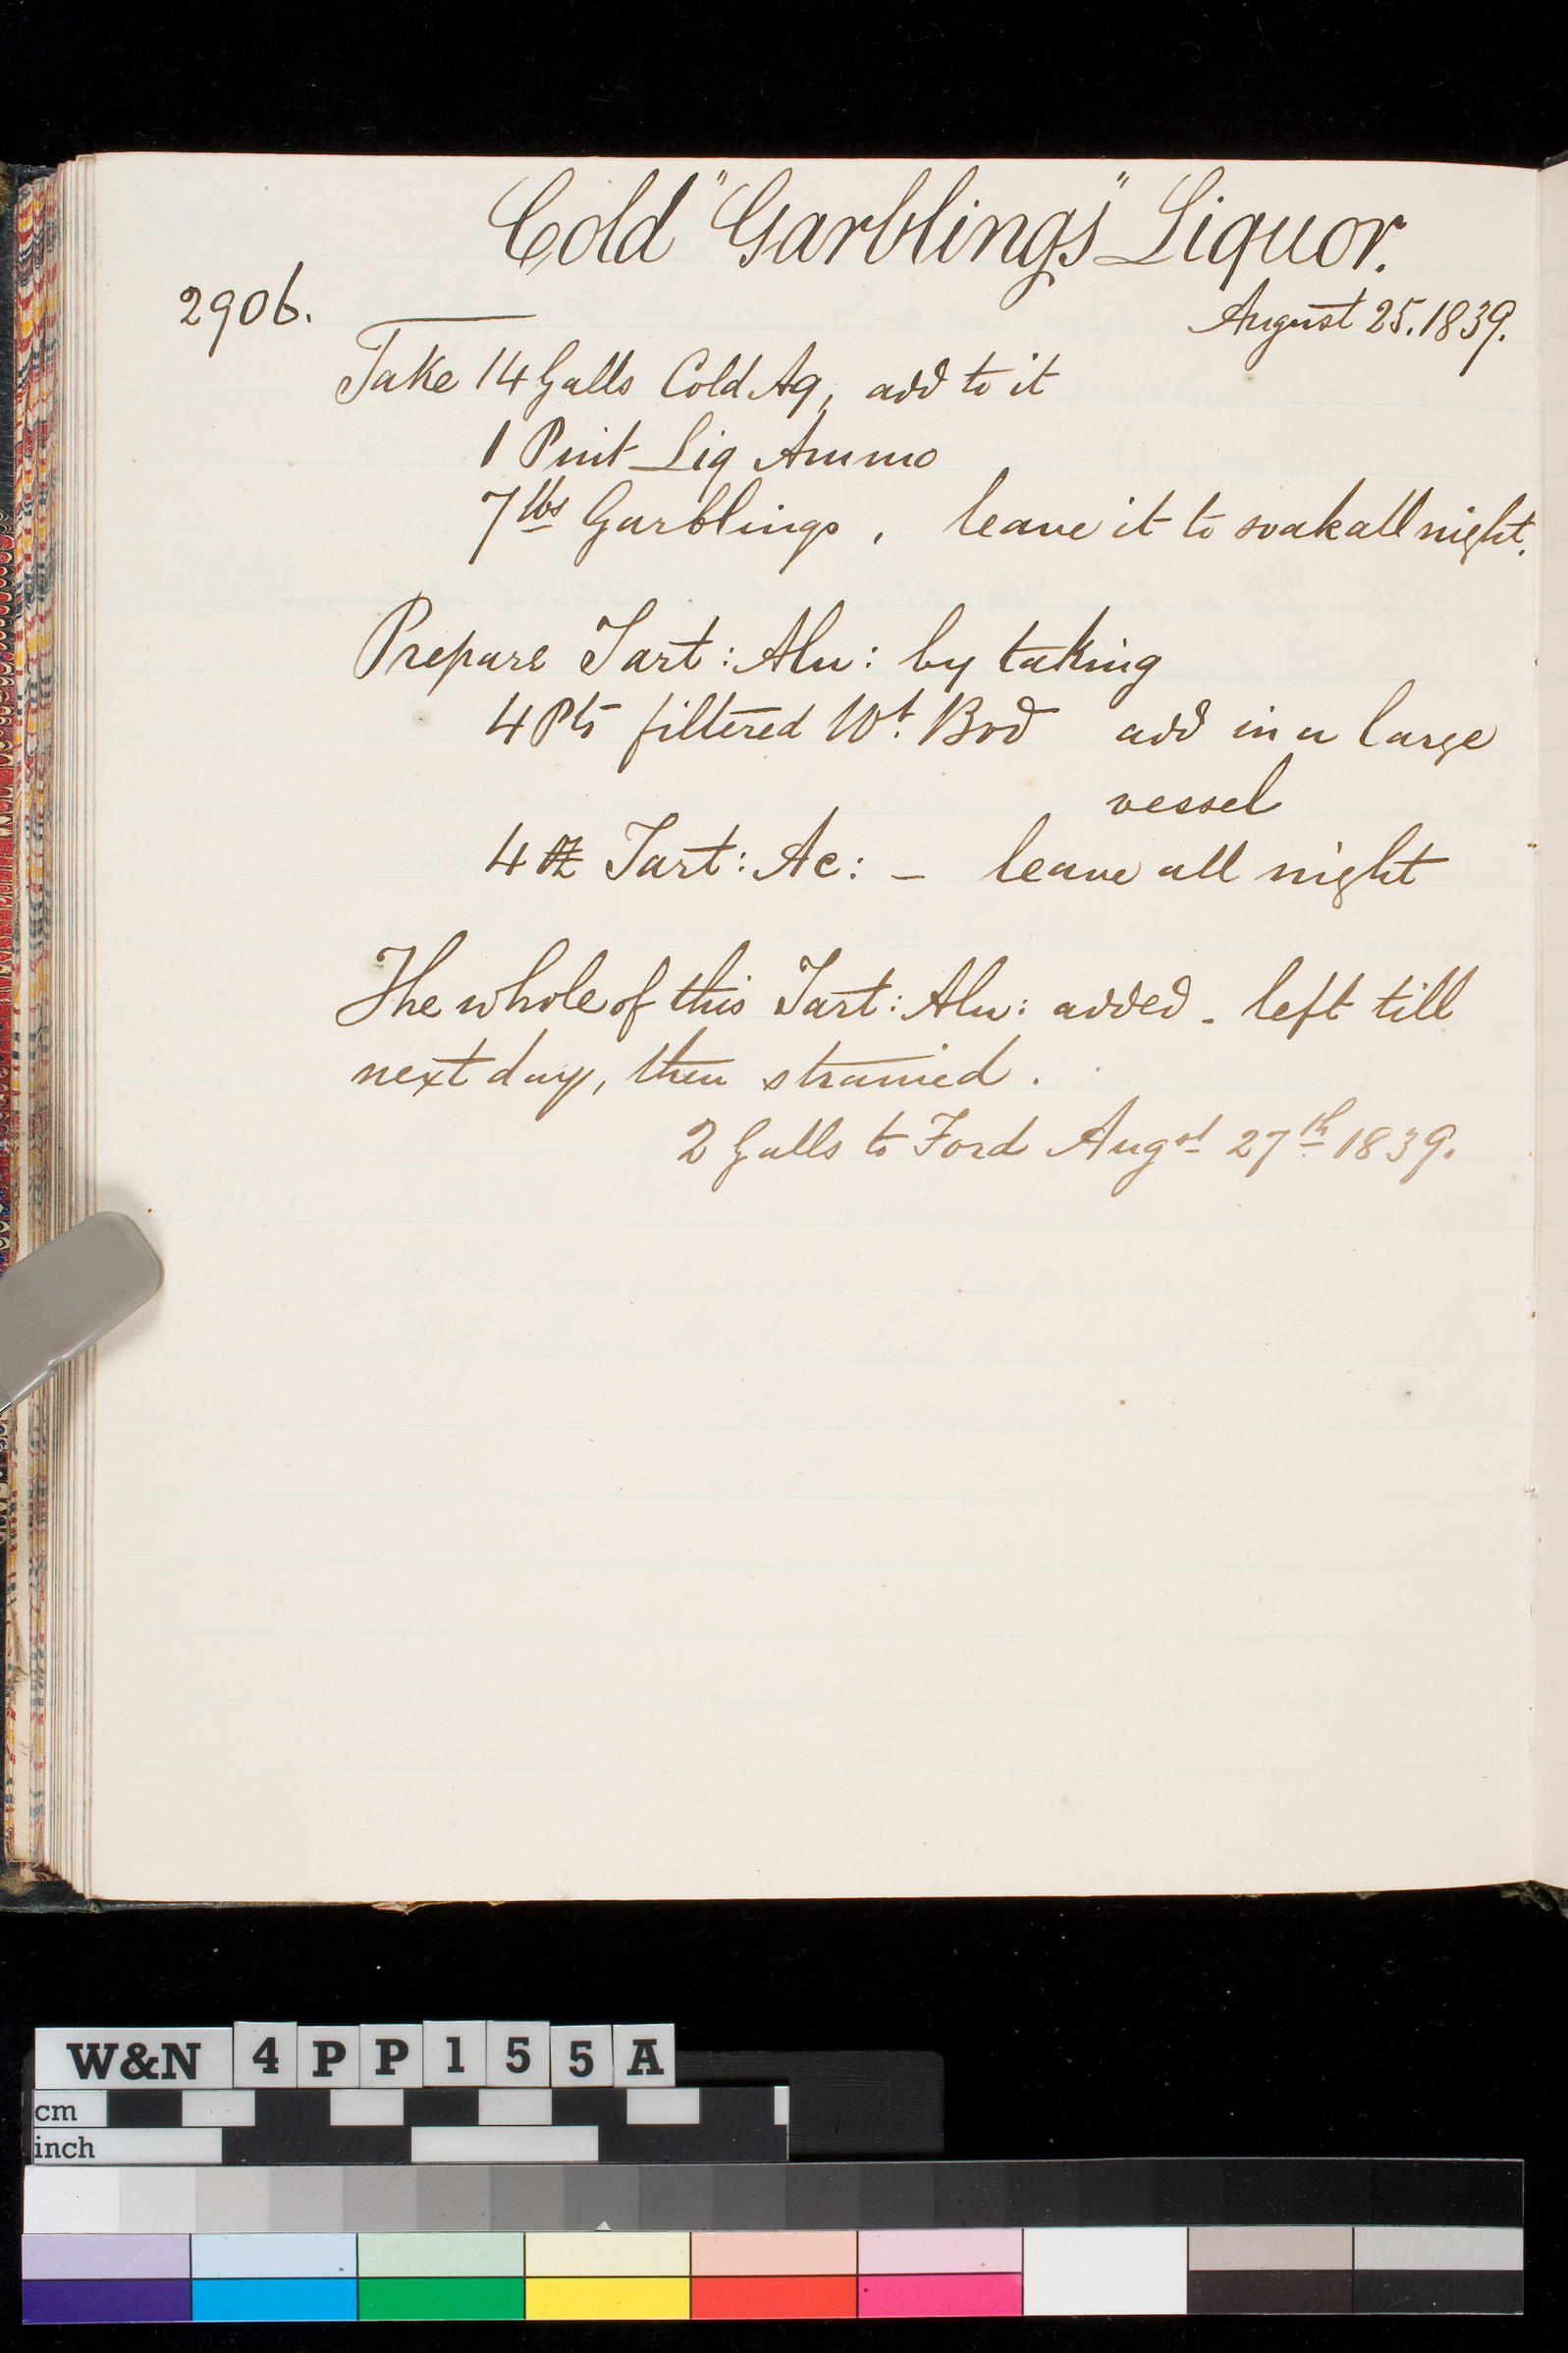 Cold "Garblings" Liquor.
2906.
August 25. 1839.
Take 14 Galls Cold Aq, add to it
1 Pint Liq Ammo
7 lbs Garblings, leave it to soak all night.
Prepare Tart: Alu: by taking
4 Pts filtered Wt. Bod add in a large
vessel
4 ℔ Tart: Ac: – leave all night
The whole of this Tart: Alu: added - left till
next day, then strained.
2 Galls to Ford Augst 27th 1839.
W&N 4PP155A
cm
inch